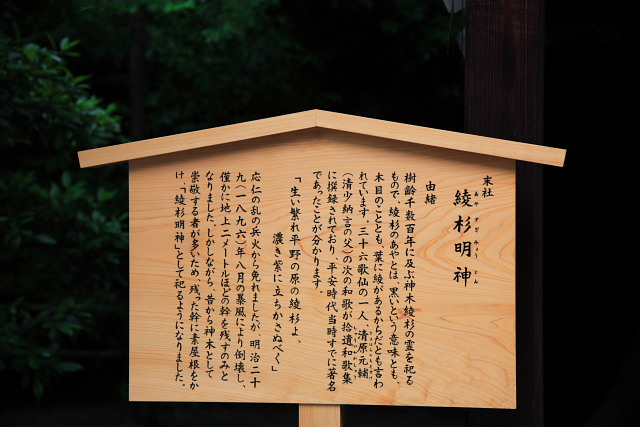 末社
綾杉明神
あやすぎみょうじん
由緒
樹齢千数百年に及ぶ神木綾杉の霊を祀る
もので、綾杉のあやとは、黒いという意味とも、
木目のことも、葉に綾があるからだとも言わ
れています。三十六歌仙の一人、清原元輔
きよはらのもとすけ
(清少納言の父)の次の和歌が拾遺和歌集
しゅういわかしゅう
に撰録されており、平安時代当時すでに著名
であったことが分かります。
「生い繁れ平野の原の綾杉よ、
濃き紫に立ちかさぬべく」
応仁の乱の兵火から免れましたが、明治二十
九(一八九六)年八月の暴風により倒壊し、
僅かに地上二メートルほどの幹を残すのみと
なりました。しかしながら、昔から神木として
崇敬する者が多いため、残った幹に素屋根をか
け「綾杉明神」として祀るようになりました。